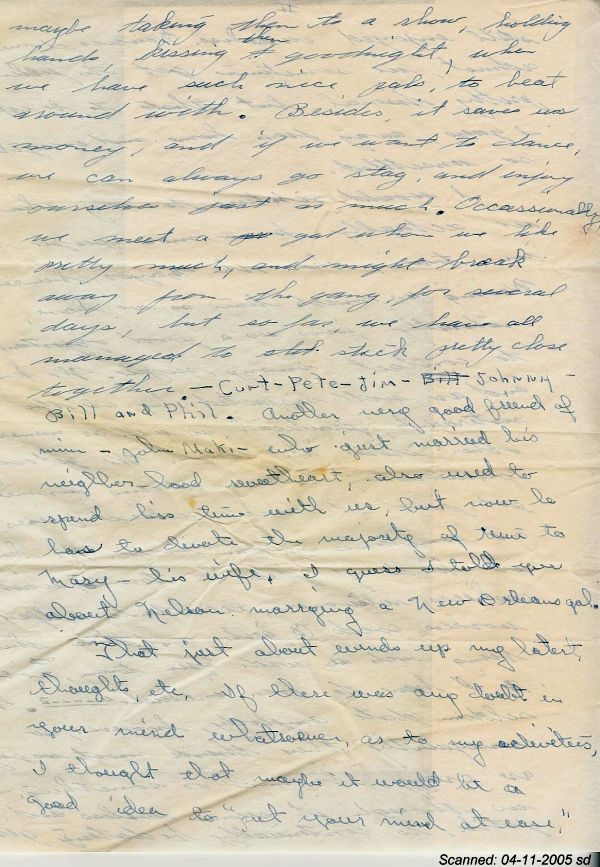 11
maybe taking them to a show, holding
hands, kissing them goodnight, when
we have such nice pals, to beat
around with. Besides, it saves us
money, and if we want to dance,
we can always go stag, and enjoy
ourselves just as much. Occassionally,
we meet a gal whom we like
pretty much, and might break
away from the gang, for several
days, but so far, we have all
managed to stick pretty close
together — Curt - Pete - Jim - Bill Johnny -
Bill and Phil. Another very good friend of
mine - John Maki - who just married his
neighborhood sweetheart, also used to
spend his time with us, but now he
has to devote the majority of time to
Mary - his wife. I guess I told you
about Nelson marrying a New Orleans gal.
That just about winds up my latest,
thoughts, etc. If there was any doubt in
your mind whatsoever, as to my activities,
I thought that maybe it would be a
good idea to "put your mind at ease."
Scanned: 04-11-2005 sd